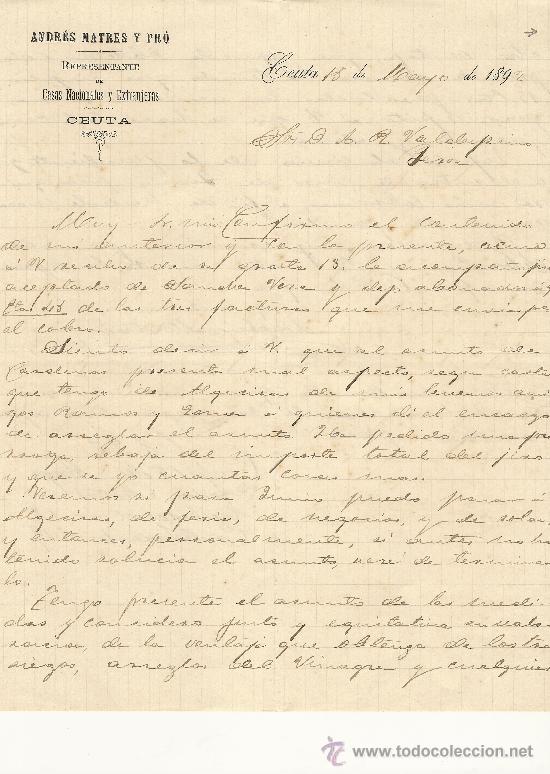 ANDRÉS MATRES Y PRÓ
REPRESENTANTE
DE
Casas Nacionales y Extranjeras
CEUTA
Ceuta 18 de Mayo de 189
Sr. D. A. R. Valdespino
Jerez
Muy Sr. mio Confirmo el contenido
de mi anterior y con la presente, acuso
á V. recibo de su grata 13. le acompaño
aceptado de Vera y
Ptas de las tres facturas que me
al cobro.
Siento decir á V. que el asunto de
Cardenas presenta mal aspecto, segun carta
que tengo de Algeciras de mis buenos ami
gos Ramos y á quienes dí el encargo
de arreglar el asunto Ha pedido una pro
rroga, rebaja del importe total del giro
y que se yo cuantas cosas mas.
Veremos si para Junio puedo pasar á
Algeciras, de feria, de negocios, y de solaz
y entonces, personalmente, si antes no ha
tenido solucion el asunto, veré de termina
lo.
Tengo presente el asunto de las medi
das y considero justo y equitativo
de la ventaja que obtenga de los tra
siegos, arreglos del Vinagre y cualquier
todocoleccion.net
www.todocoleccion.net